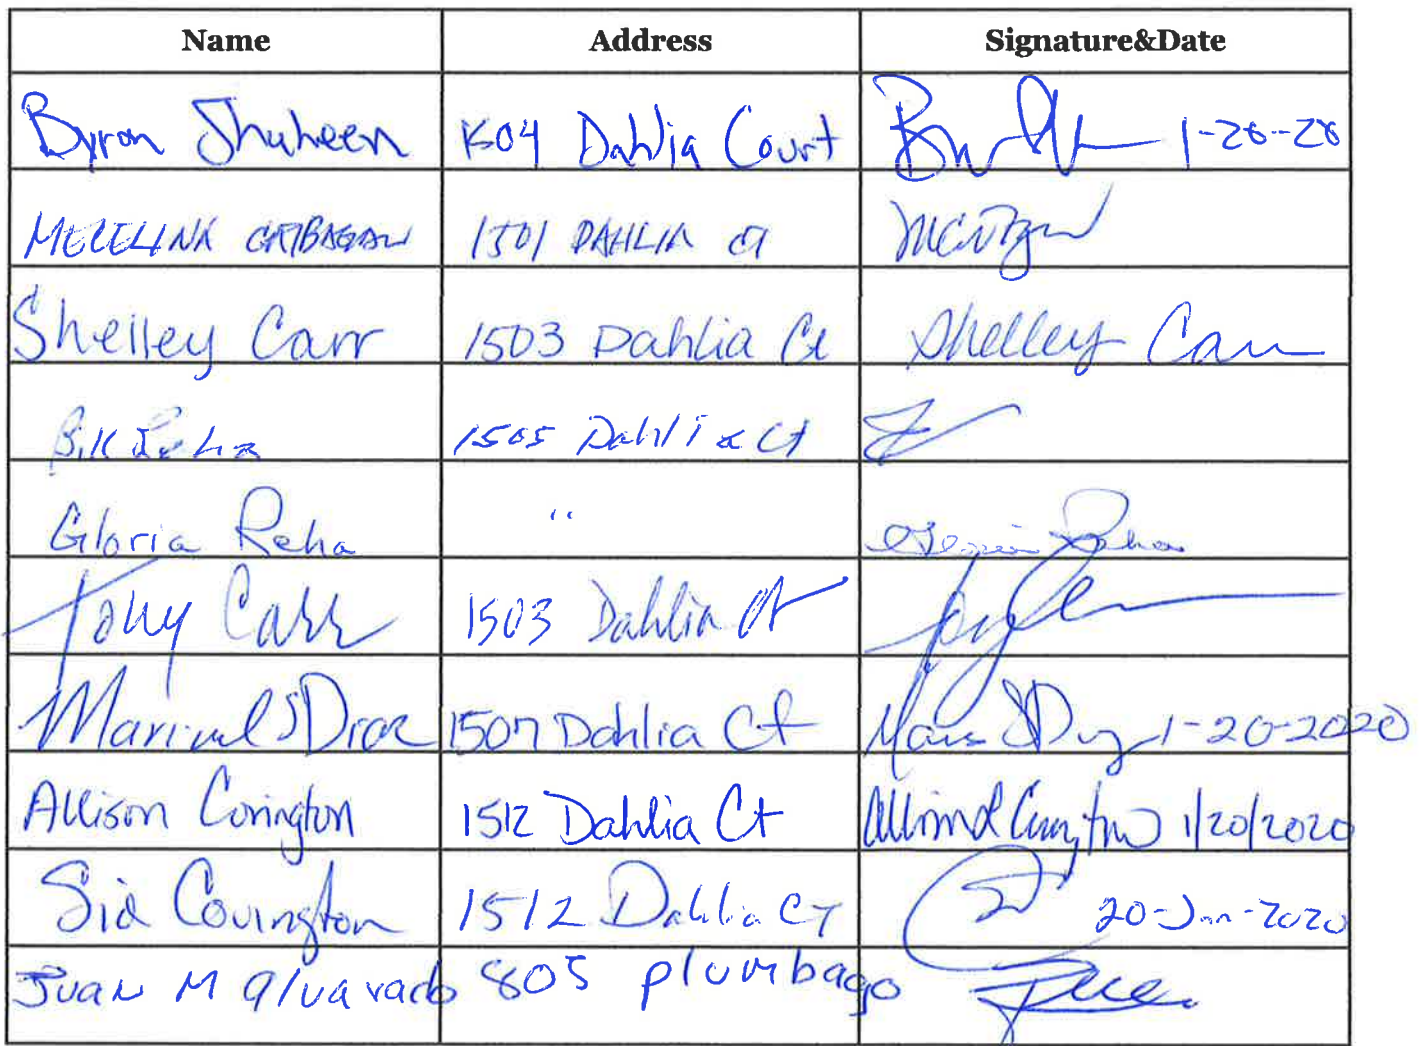 Name Address Signature&Date
Byron Shaheen 1504 Dahlia Court 1-20-20
MERELINA CATBAGAN 1501 DAHLIA CT
Shelley Carr 1503 Dahlia Ct Shelley Carr
Bill Reha 1505 Dahlia Ct
Gloria Reha " Gloria Reha
Tony Carr 1503 Dahlia Ct
Diaz 1507 Dahlia Ct 1-20-2020
Allison Covington 1512 Dahlia Ct Allison Covington 1/20/2020
Sid Covington 1512 Dahlia CT 20-Jan-2020
Juan M Alvarado 805 plumbago